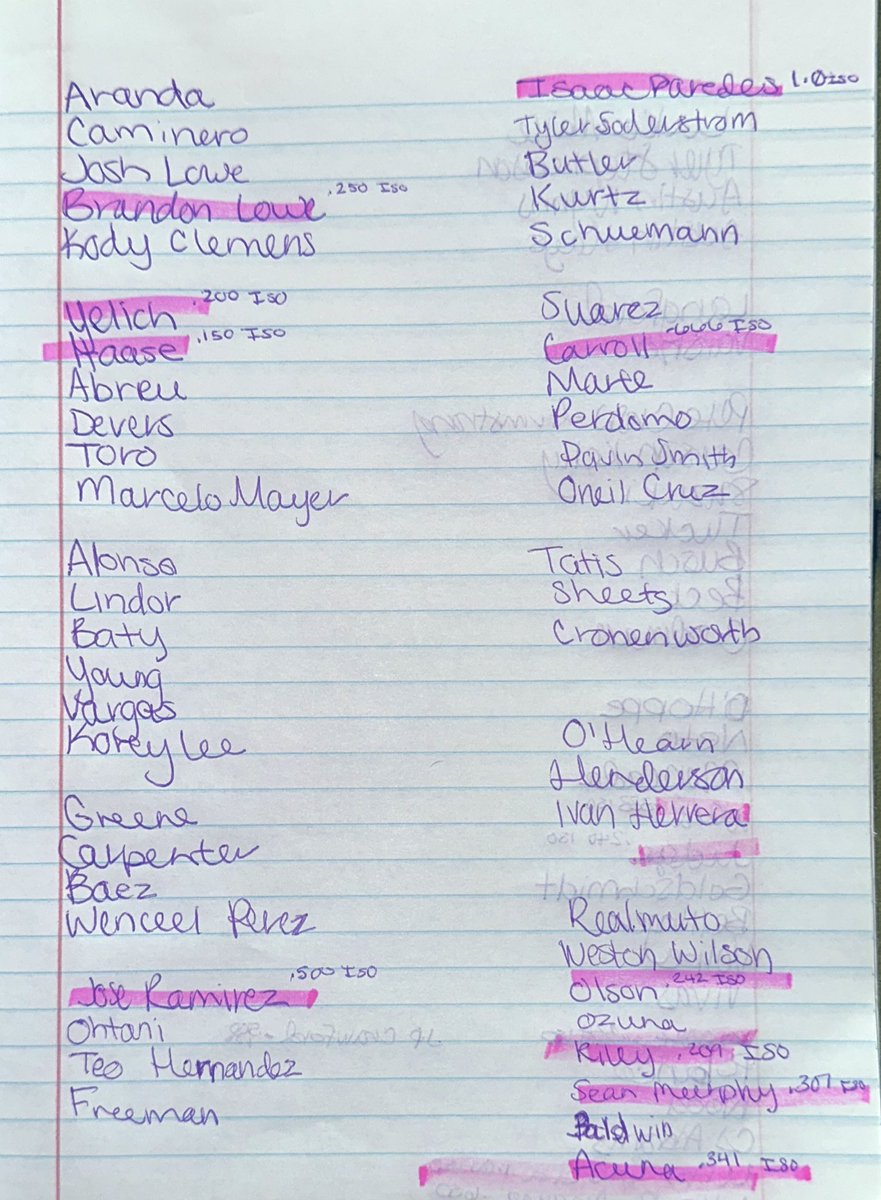 Aranda
Caminero
Josh Lowe
Brandon Lowe .250 ISO
Kody Clemens
Yelich .200 ISO
Haase .150 ISO
Abreu
Devers
Toro
Marcelo Mayer
Alonso
Lindor
Baty
Young
Vargas
Korey Lee
Greene
Carpenter
Baez
Wenceel Perez
Jose Ramirez .500 ISO
Ohtani
Teo Hernandez
Freeman
Isaac Paredes 1.0 ISO
Tyler Soderstrom
Butler
Kurtz
Schuemann
Suarez
Carroll .666 ISO
Marte
Perdomo
Pavin Smith
Oneil Cruz
Tatis
Sheets
Cronenworth
O'Hearn
Henderson
Ivan Herrera
Realmuto
Weston Wilson
Olson .242 ISO
Ozuna
Riley .209 ISO
Sean Murphy .307 ISO
Baldwin
Acuna .341 ISO